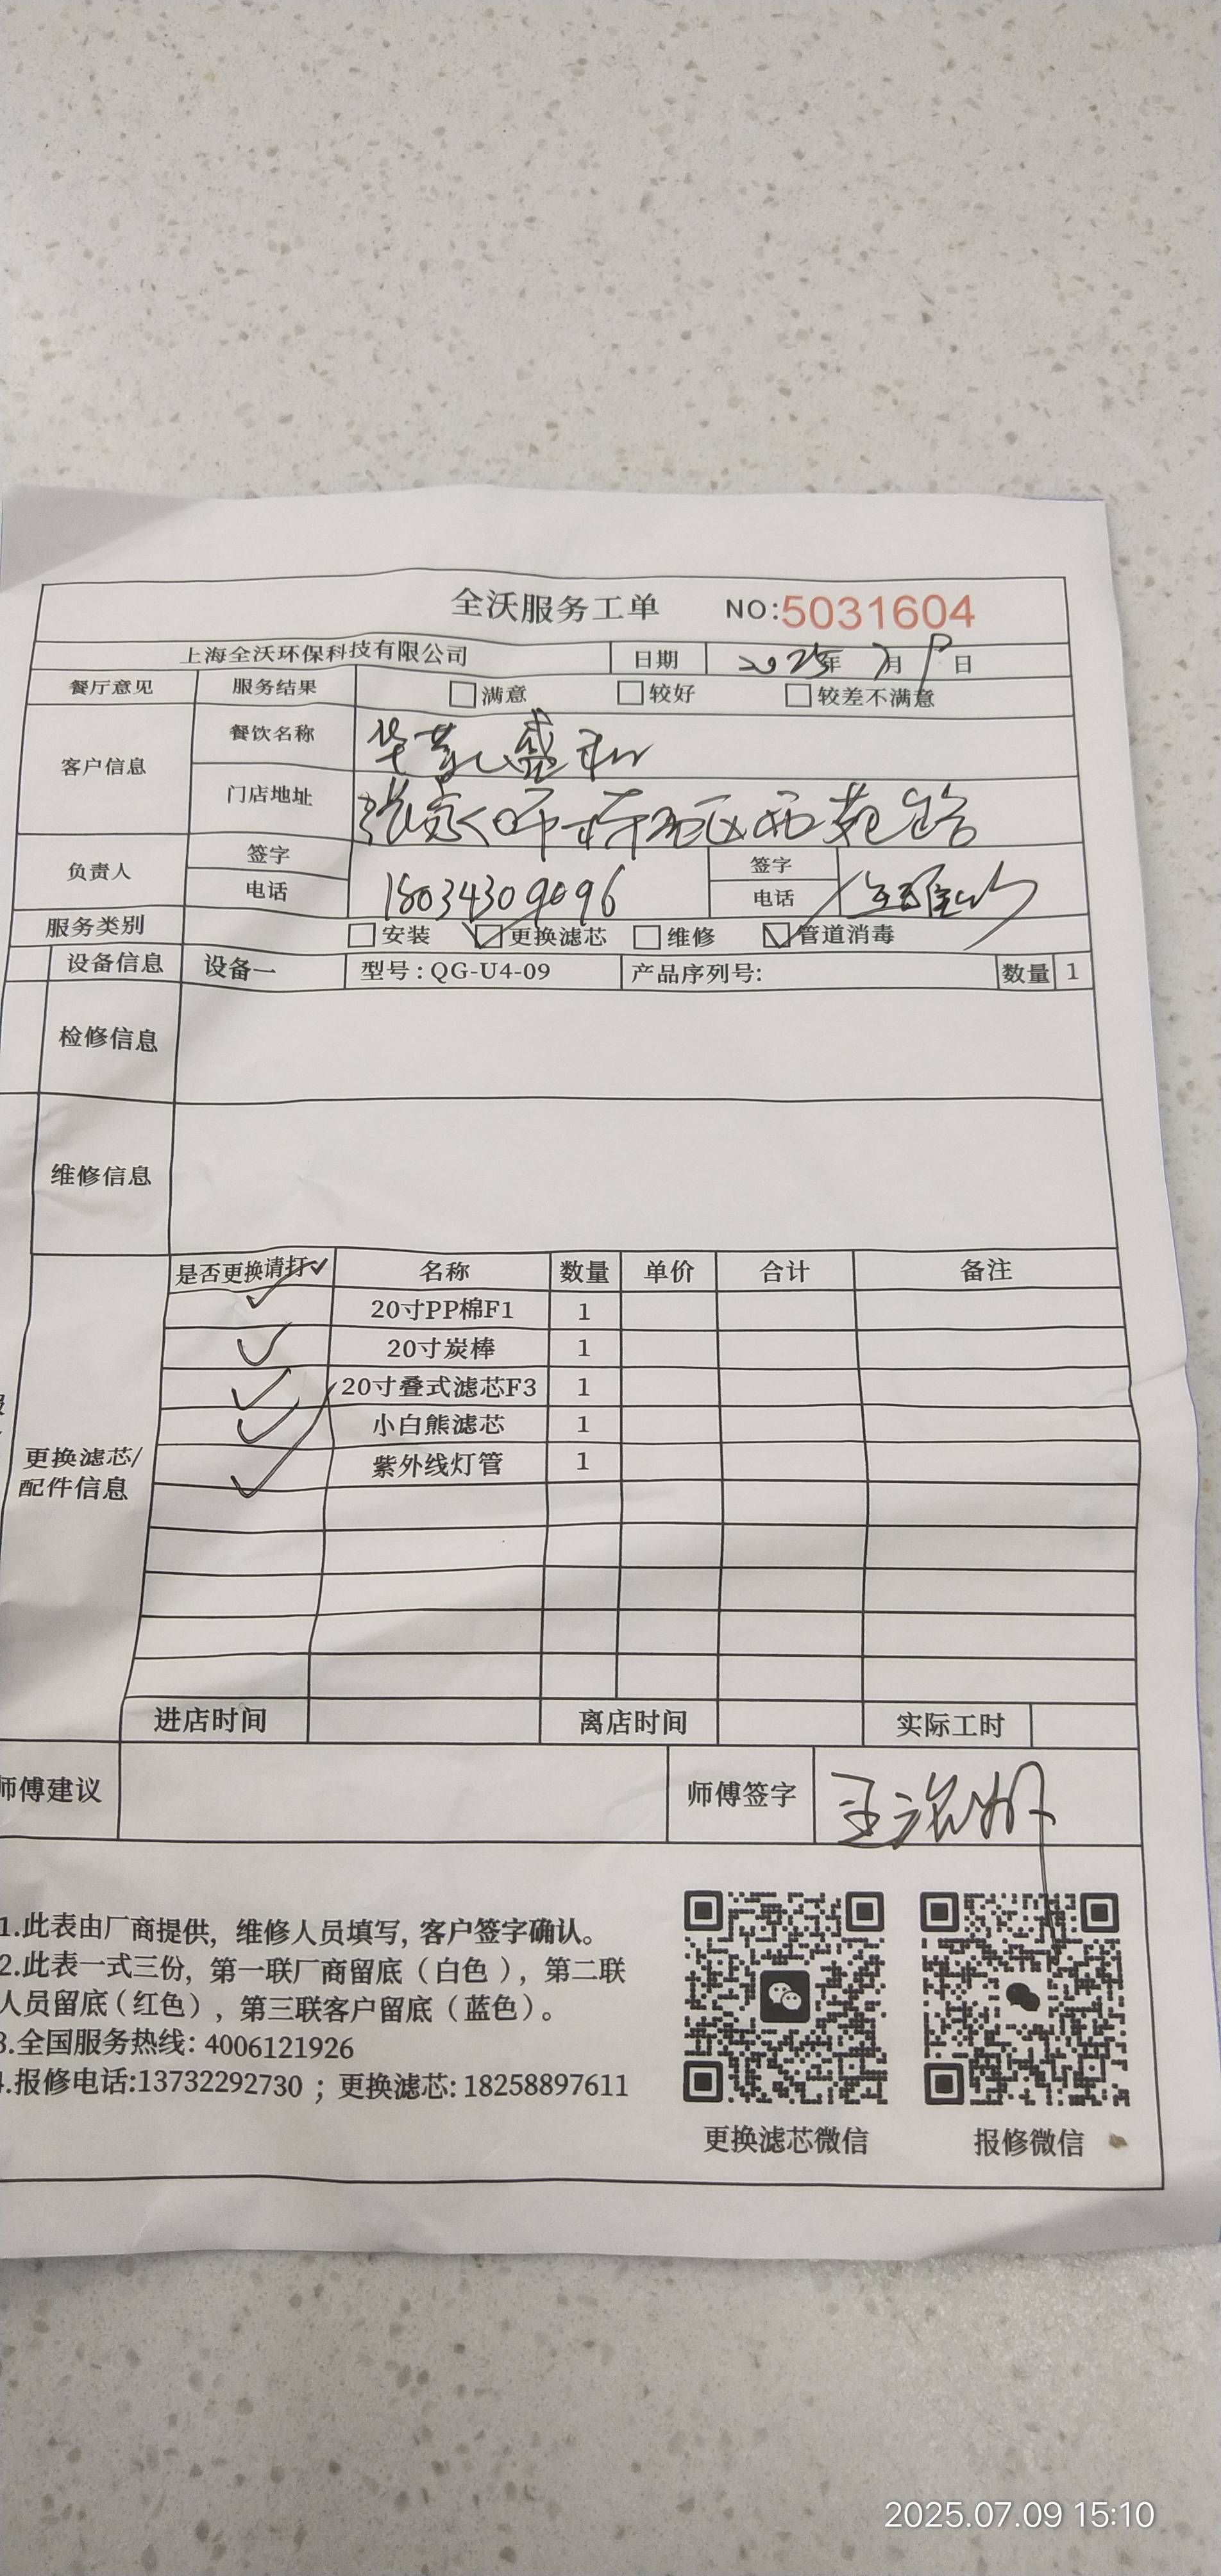 全沃服务工单 NO:5031604
上海全沃环保科技有限公司 日期 2025年 7月 9日
餐厅意见 服务结果 满意 较好 较差不满意
客户信息 餐饮名称 华莱盛和
门店地址 张家口市桥西区西苑路
负责人 签字 签字
电话 18034309096 电话
服务类别 安装 更换滤芯 维修 管道消毒
设备信息 设备一 型号: QG-U4-09 产品序列号: 数量 1
检修信息
维修信息
是否更换请打✓ 名称 数量 单价 合计 备注
✓ 20寸PP棉F1 1
✓ 20寸炭棒 1
✓ 20寸叠式滤芯F3 1
✓ 小白熊滤芯 1
✓ 紫外线灯管 1
更换滤芯/
配件信息
进店时间 离店时间 实际工时
师傅建议 师傅签字
1.此表由厂商提供, 维修人员填写, 客户签字确认。
2.此表一式三份, 第一联厂商留底(白色), 第二联
人员留底(红色), 第三联客户留底(蓝色)。
3.全国服务热线: 4006121926
4.报修电话:13732292730 ; 更换滤芯: 18258897611
更换滤芯微信 报修微信
2025.07.09 15:10